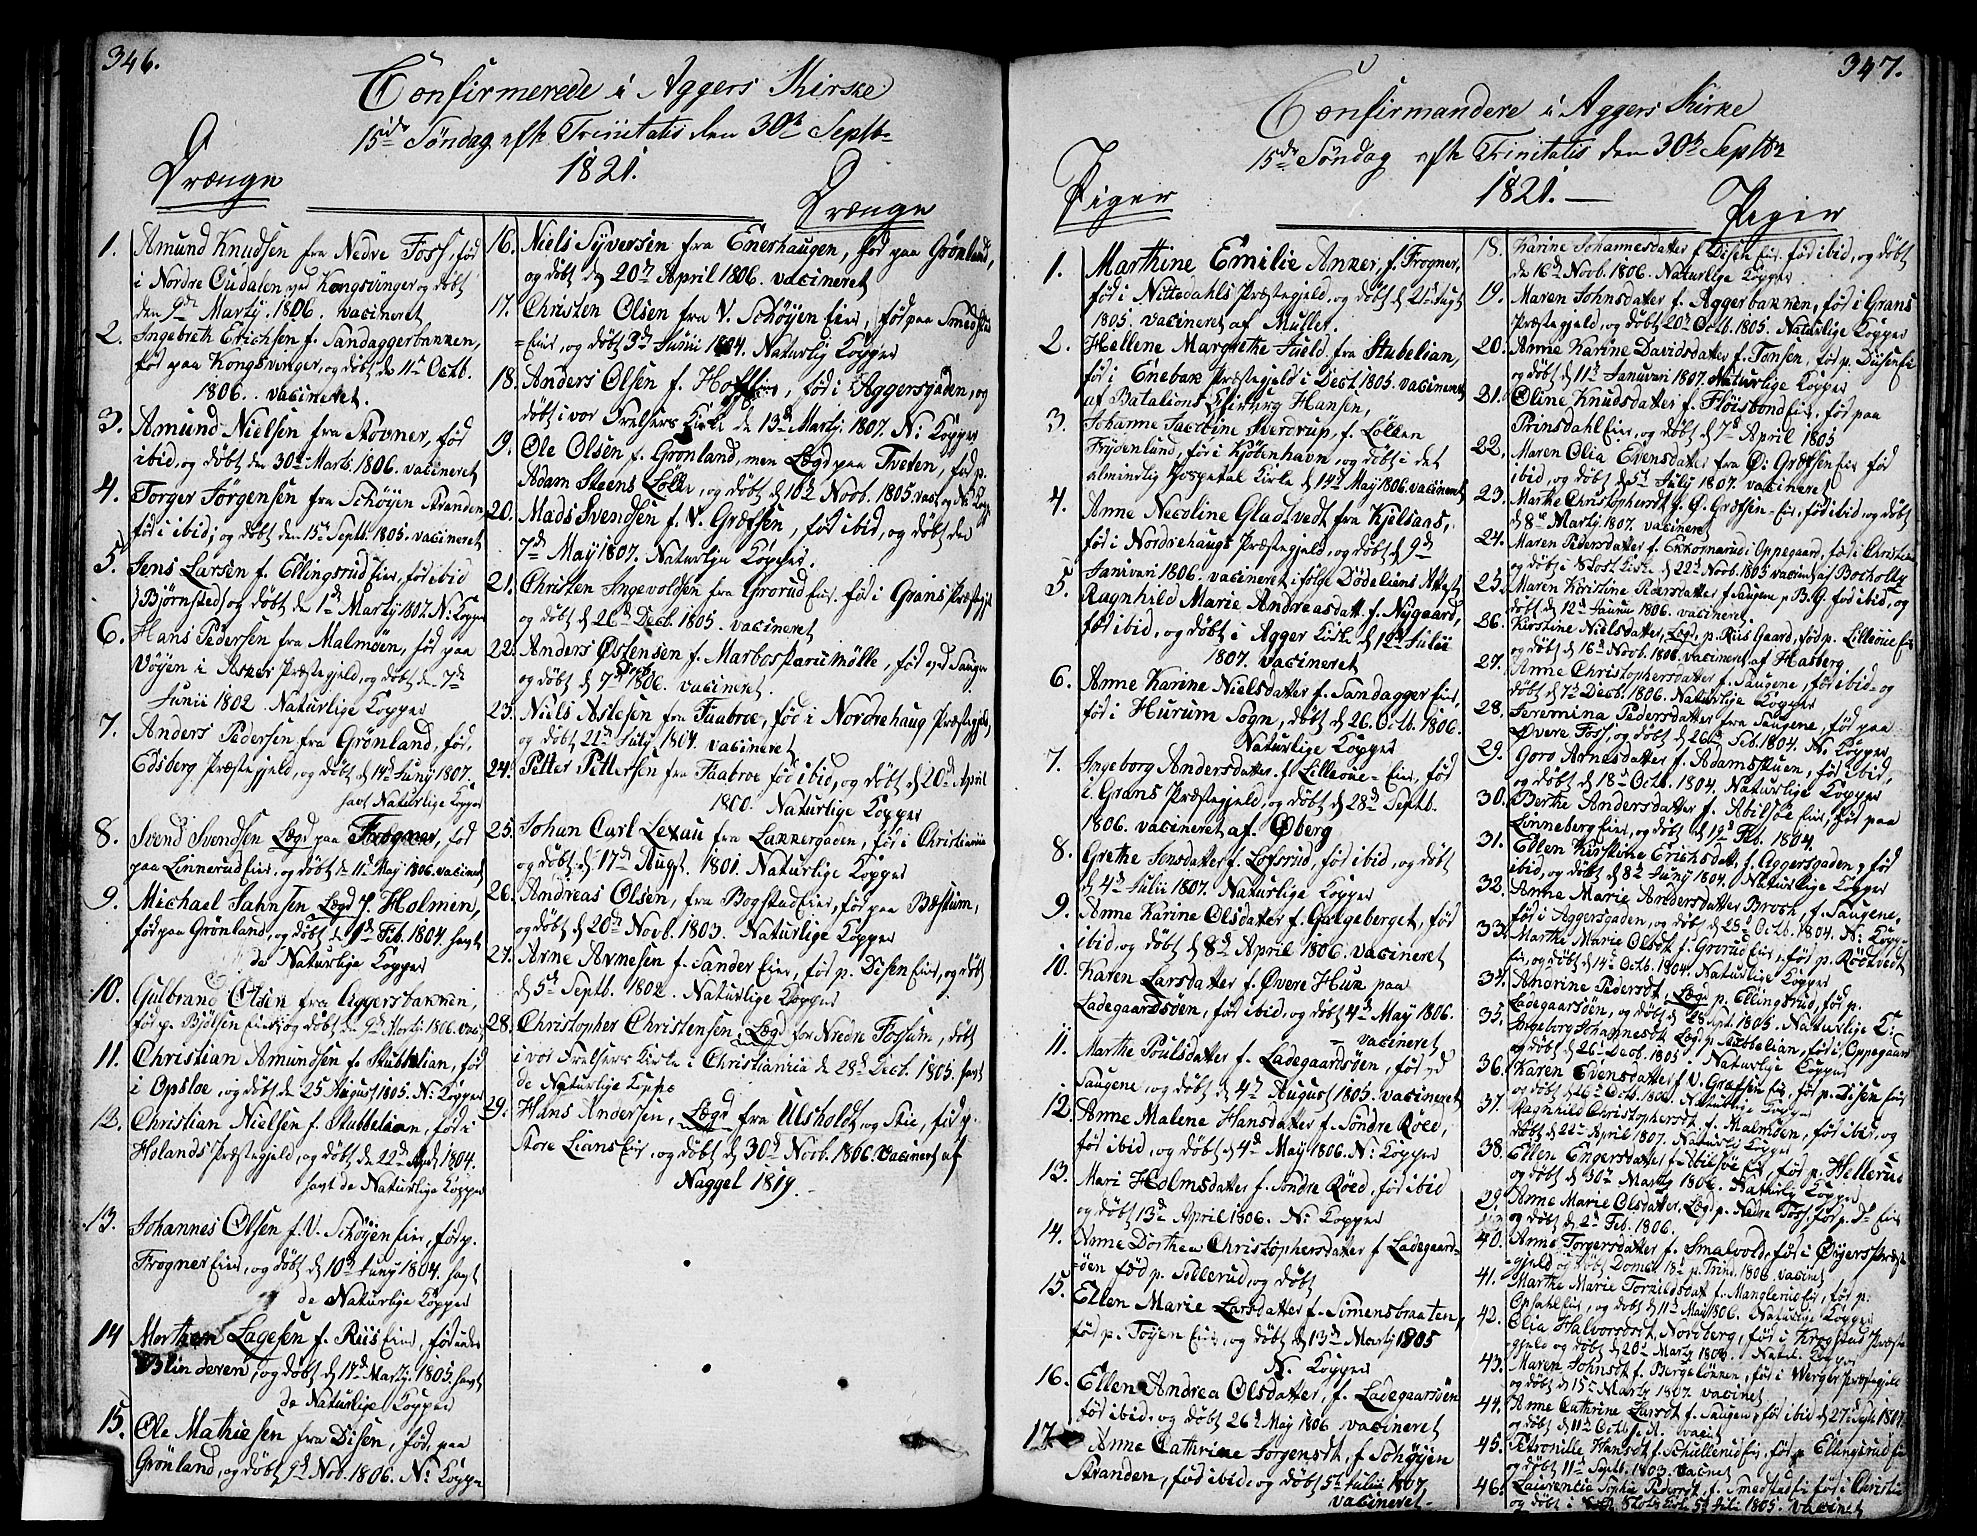 346.
Confirmerede i Aggers Kirke
15de Søndag efter Trinitatis den 30te Septbr
1821.
Drænge
Drænge
1. Amund Knudsen fra Nedre Foss, fød
i Nordre Oudalen ved Kongsvinger og døbt
den 9de Marty 1806. vacineret
2. Ingebreth Erichsen f. Sandaggerbakken,
fød paa Kongsvinger, og døbt de 11te Octb.
1806. vacineret.
3. Amund Nielsen fra Rovner, fød
ibid, og døbt den 30te Marts 1806. vacineret
4. Torger Jørgensen fra Schøyen Stranden
fød i ibid, og døbt den 15de Septb. 1805. vacineret
5. Jens Larsen f. Ellingsrud Eier, fød ibid
(Bjørnsted) og døbt den 1ste Marty 1807. N: Kopper
6. Hans Pedersen fra Malmøen, fød paa
Vøyen i Asker Præstegjeld, og døbt de 7de
Junii 1802 Naturlige Kopper
7. Anders Pedersen fra Grønland, fød,
Edsberg Præstegjeld, og døbt de 14de Juny 1807.
havt Naturlige Kopper
8. Svend Svendsen Lægd paa Frogner, fød
paa Linnerud Eier, og døbt de 11te May 1806. vacineret
9. Michael Jahnsen Lægd p. Holmen,
fød paa Grønland, og døbt de 1ste Feb. 1804. havt
de Naturlige Kopper
10. Gulbrand Olsen fra Aggersbakken,
fød p. Bjølsen Eier, og døbt den 9de Marti 1806. vac.
11. Christian Amundsen f. Stubbelian, fød
i Opsloe, og døbt de 25 August 1805. N: Kopper
12. Christian Nielsen f. Stubbelian, fød i
Hølands Præstegjeld, og døbt de 22de 1804.
havt de Naturlige Kopper
13. Johannes Olsen f. V. Schøyen Eier, fød p.
Frogner Eier, og døbt d 10de Juny 1804. havt
de Naturlige Kopper
14 Morthen Lagesen f. Riis Eier, fød under
Blinderen, og døbt d 14de Marty 1805. havt
de Naturlige Kopper
15. Ole Mathiesen fra Disen, fød paa
Grønland, og døbt 9de Nov. 1806. N: Kopper
16. Niels Syversen fra Enerhaugen, fød paa Grønland,
og døbt d 20de April 1806. vacineret
17. Christen Olsen fra V. Schøyen Eier, fød paa Smedstad
Eier, og døbt 3de Junii 1804. Naturlig Kopper
18. Anders Olsen f. Hoff Eier, fød i Aggersgaden, og
døbt i vor Frelsers Kirke de 13de Marty 1807. N: Kopper
19. Ole Olsen f. Grønland, men Lægd paa Tveten, fød p.
Adam Steens Løkke, og døbt d 10de Novb. 1805.
20. Mads Svendsen f. V. Græfsen, fød ibid, og døbt den
7de May 1807. Naturlige Kopper.
21. Christen Ingevoldsen fra Grorud Eier. fød i Grans Præstegjeld
og døbt d 26de Decb. 1805. vacineret
22. Anders Østensen f. Marboskarumølle, fød ved Saugen
og døbt d 7de Decb 1806. vacineret.
23. Niels Aslesen fra Faabroe, fød i Nordrehaug Præstegjeld,
og døbt 22de July 1804. vacineret
24. Petter Pettersen fra Faabroe fød ibid, og døbt d 20de April
1800. Naturlige Kopper
25. Johan Carl Lexau fra Lakkergaden, fød i Christiania
og døbt d 17de Augt. 1801. Naturlige Kopper
26. Andreas Olsen, fra Bogstad Eier, fød paa Bæstum,
og døbt d 20de Novb. 1803. Naturlige Kopper
27. Arne Arnesen f. Sander Eier, fød p. Disen Eier, og døbt
d 5te Septb. 1802. Naturlige Kopper
28. Christopher Christensen Lægd for Nedre Fossum, døbt
i vor Frelsers Kirke i Christiania de 28de Decb. 1805. havt
de Naturlige Koppe
29. Hans Andersen, Lægd fra Ulsholdt og Stie, fød p.
Store Lians Eier, og døbt d 30de Novb. 1806. vacineret af
Naggel 1819.
347.
Confirmandere i Aggers Kirke
15de Søndag efter Trinitatis den 30te Septbr
1821. —
Piger
Piger
1. Marthine Emilie Anker, f. Frogner,
fød i Nittedahls Præstegjeld, og døbt d 21de Augt
1805. vacineret af Muller.
2. Hellene Margrethe Jueld fra Stubelian,
fød i Enebak Præstegjeld i Decb. 1805. vacineret
af Batalions Chirurg Hansen,
3. Johanne Jacobine Sverdrup, f. Løkken
Frydenlund, fød i Kjøbenhavn, og døbt i det
almindlig Hospetal Kirke d 14de May 1806. vacineret
4. Anne Nicoline Gladtvedt fra Kjelsaas,
fød i Nordrehaugs Præstegjeld, og døbt d 9de
Januari 1806. vacineret ifølge Attest
5 Ragnhild Marie Andreasdatt f. Nygaard,
fød ibid, og døbt i Agger Kirke d 12te Julii
1807. vacineret
6. Anne Karine Nielsdatter f. Sandagger Eier,
fød i Hurum Sogn, døbt d 26. Octb. 1806.
Naturlige Kopper
7. Ingeborg Andersdatter f. Lilleøie Eier, fød
i Grans Præstegjeld, og døbt d 28de Septb.
1806. vacineret af Øberg
8. Grethe Jonsdatter f. Lofsrud, fød ibid, og døbt
d 4de Julii 1807. Naturlige Kopper
9. Anne Karine Olsdatter f. Galgeberget, fød
ibid, og døbt d 8de April 1806. vacineret
10. Karen Larsdatter f. Øvere Huk paa
Ladegaardsøen, fød ibid, og døbt 4de May 1806.
– vacineret
11. Marthe Poulsdatter f. Ladegaardsøen, fød ved
Saugene, og døbt d 4de August 1805. vacineret
12. Anne Malene Hansdatter f. Søndre Røed,
fød ibid, og døbt d 4de May 1806. N: Kopper
13. Mari Holmsdatter f. Søndre Røed, fød ibid
og døbt 13de April 1806. N: Kopper
14. Anne Dorthea Christophersdatter f Ladegaards-
øen fød p. Sollerud, og døbt
15. Ellen Marie Larsdatter f. Simensbraaten,
fød p. Tøyen Eier, og døbt d 13de Marty 1805
N. Kopper
16. Ellen Andrea Olsdatter, f. Ladegaarsøen
fød ibid, og døbt 26de May 1806 vacineret
17. Anne Cathrine Jørgensdt. f. Schøyen
Stranden, fød ibid, og døbt 5te Julii 1807.
vacineret –
18. Karine Johannesdatter f. Disen Eier, fød ibid, og døbt
de 16de Novb. 1806. Naturlige Kopper
19. Maren Johnsdatter f. Aggerbakken, fød i Grans
Præstegjeld, og døbt 20de Octb. 1805. Naturlige Kopper
20. Anne Karine Davidsdatter f. Tonsen, fød p. Disen Ei
og døbt d 11te Januari 1807. Naturlige Kopper
21. Oline Knudsdatter f. Fløisbond Eier. fød paa
Prinsdahl Eier, og døbt d 7de April 1805
22. Maren Olia Evensdatter fra Ø: Græfsen Eier fød
ibid, og døbt d 5te July 1807. vacineret
23. Marthe Christophersdt f. Ø. Græfsen Eier, fød ibid, og døbt
d 8de Marty 1807. vacineret
24. Maren Pedersdatter f. Ekkornarud i Oppegaard, fød i Christian
og døbt i Slots Kirke d 22de Novb. 1805 vacineret af Bocholtz
25. Maren Kirstine Pedersdatter f. Saugen p B. G. fød ibid, og
døbt d 12te Januii 1806. vacineret.
26. Kirstine Nielsdatter, Lægd p. Riis Gaard, fød p. Lilleøie Eie
og døbt d 16de Novb. 1806 vacineret af Hasberg.
27. Anne Christophersdatter f. Saugene, fød ibid, og
døbt d 7de Decb. 1806. Naturlige Kopper
28. Jeremina Pedersdatter fra Saugene, fød paa
Øvere Foss, og døbt d 26de Feb. 1804. N: Kopper
29. Goro Arnesdatter f. Adamstuen, fød ibid,
og døbt d 18de Octb. 1804. Naturlige Kopper
30. Berthe Andersdatter f. Abilsøe Eier, fød paa
Linneberg Eier, og døbt d 19de Feb. 1804.
31. Ellen Kirstine Erichsdatt. f. Aggersgaden, fød
ibid, og døbt d 8de Juny 1804. Naturlige Kopper
32. Anne Marie Andersdatter Broch, f. Saugene,
fød i Aggersgaden, og døbt d 25de Octb. 1804. N: Kopp
33. Marthe Marie Olsdt. f. Grorud Eier, fød p. Rødtvedt
Eier, og døbt d 14de Octb. 1804. Naturlige Kopper
34. Andrine Pedersdt, Lægd p. Ellingsrud, fød p.
Ladegaarsøen, og døbt d 28 Spt. 1805. Naturlige K:
35. Ingeborg Johannesdt Lægd p. Stubbelian, fød i Oppegaard
og døbt d 26de Decb. 1805 Naturlige Kopper
36. Karen Evensdatter f. V. Græfsen Eier, fød p. Disen Eier
og døbt d 26de Octb. 1806. Naturlige Kopper
37. Ragnhild Christophersdt f. Malmøen, fød ibid, og
døbt d 22de April 1807. Naturlig Kopper
38. Ellen Engersdatter f. Abilsøe Eier, fød p. Hellerud
og døbt d 30te Marty 1806. Naturlig Kopper
39. Anne Marie Olsdatter, Lægd p. Nedre Foss, fød p. Do Eier
og døbt d 2de Feb. 1806.
40. Anne Torgersdatter f. Smalvold, fød i Øyers Præste
gjeld og døbt Domc. 18de p. Trind. 1806. vacinet
41. Marthe Marie Tornildsdat f. Manglerud Eier, fød p.
Opsahl Eier, og døbt d 11te May 1806. Naturlig Kopper
42. Olia Halvorsdatt. Nordberg, fød i Krogstad Præste
gjeld og døbt d 20de Marty 1806. Natul. Kopper
43. Maren Johnsdt f. Bergeløkken, fød i Werger Præstegjeld
og døbt d 15de Marty 1807. vacinet
44. Anne Cathrine Larsdt f. Saugen, fød ibid d 27de Septb 1804.
og døbt d 11te Octb. s. A. vacinet
45. Petronille Hansdt f. Schullerud Eier, fød p Ellingsrud Eier
og døbt d 11te Septb. 1803. vacinet
46. Laurentia Sophie Pedersdt. f. Smedstad Ei fød i Christia
og døbt i Slots Kirke 5te Juli 1805. vacinet